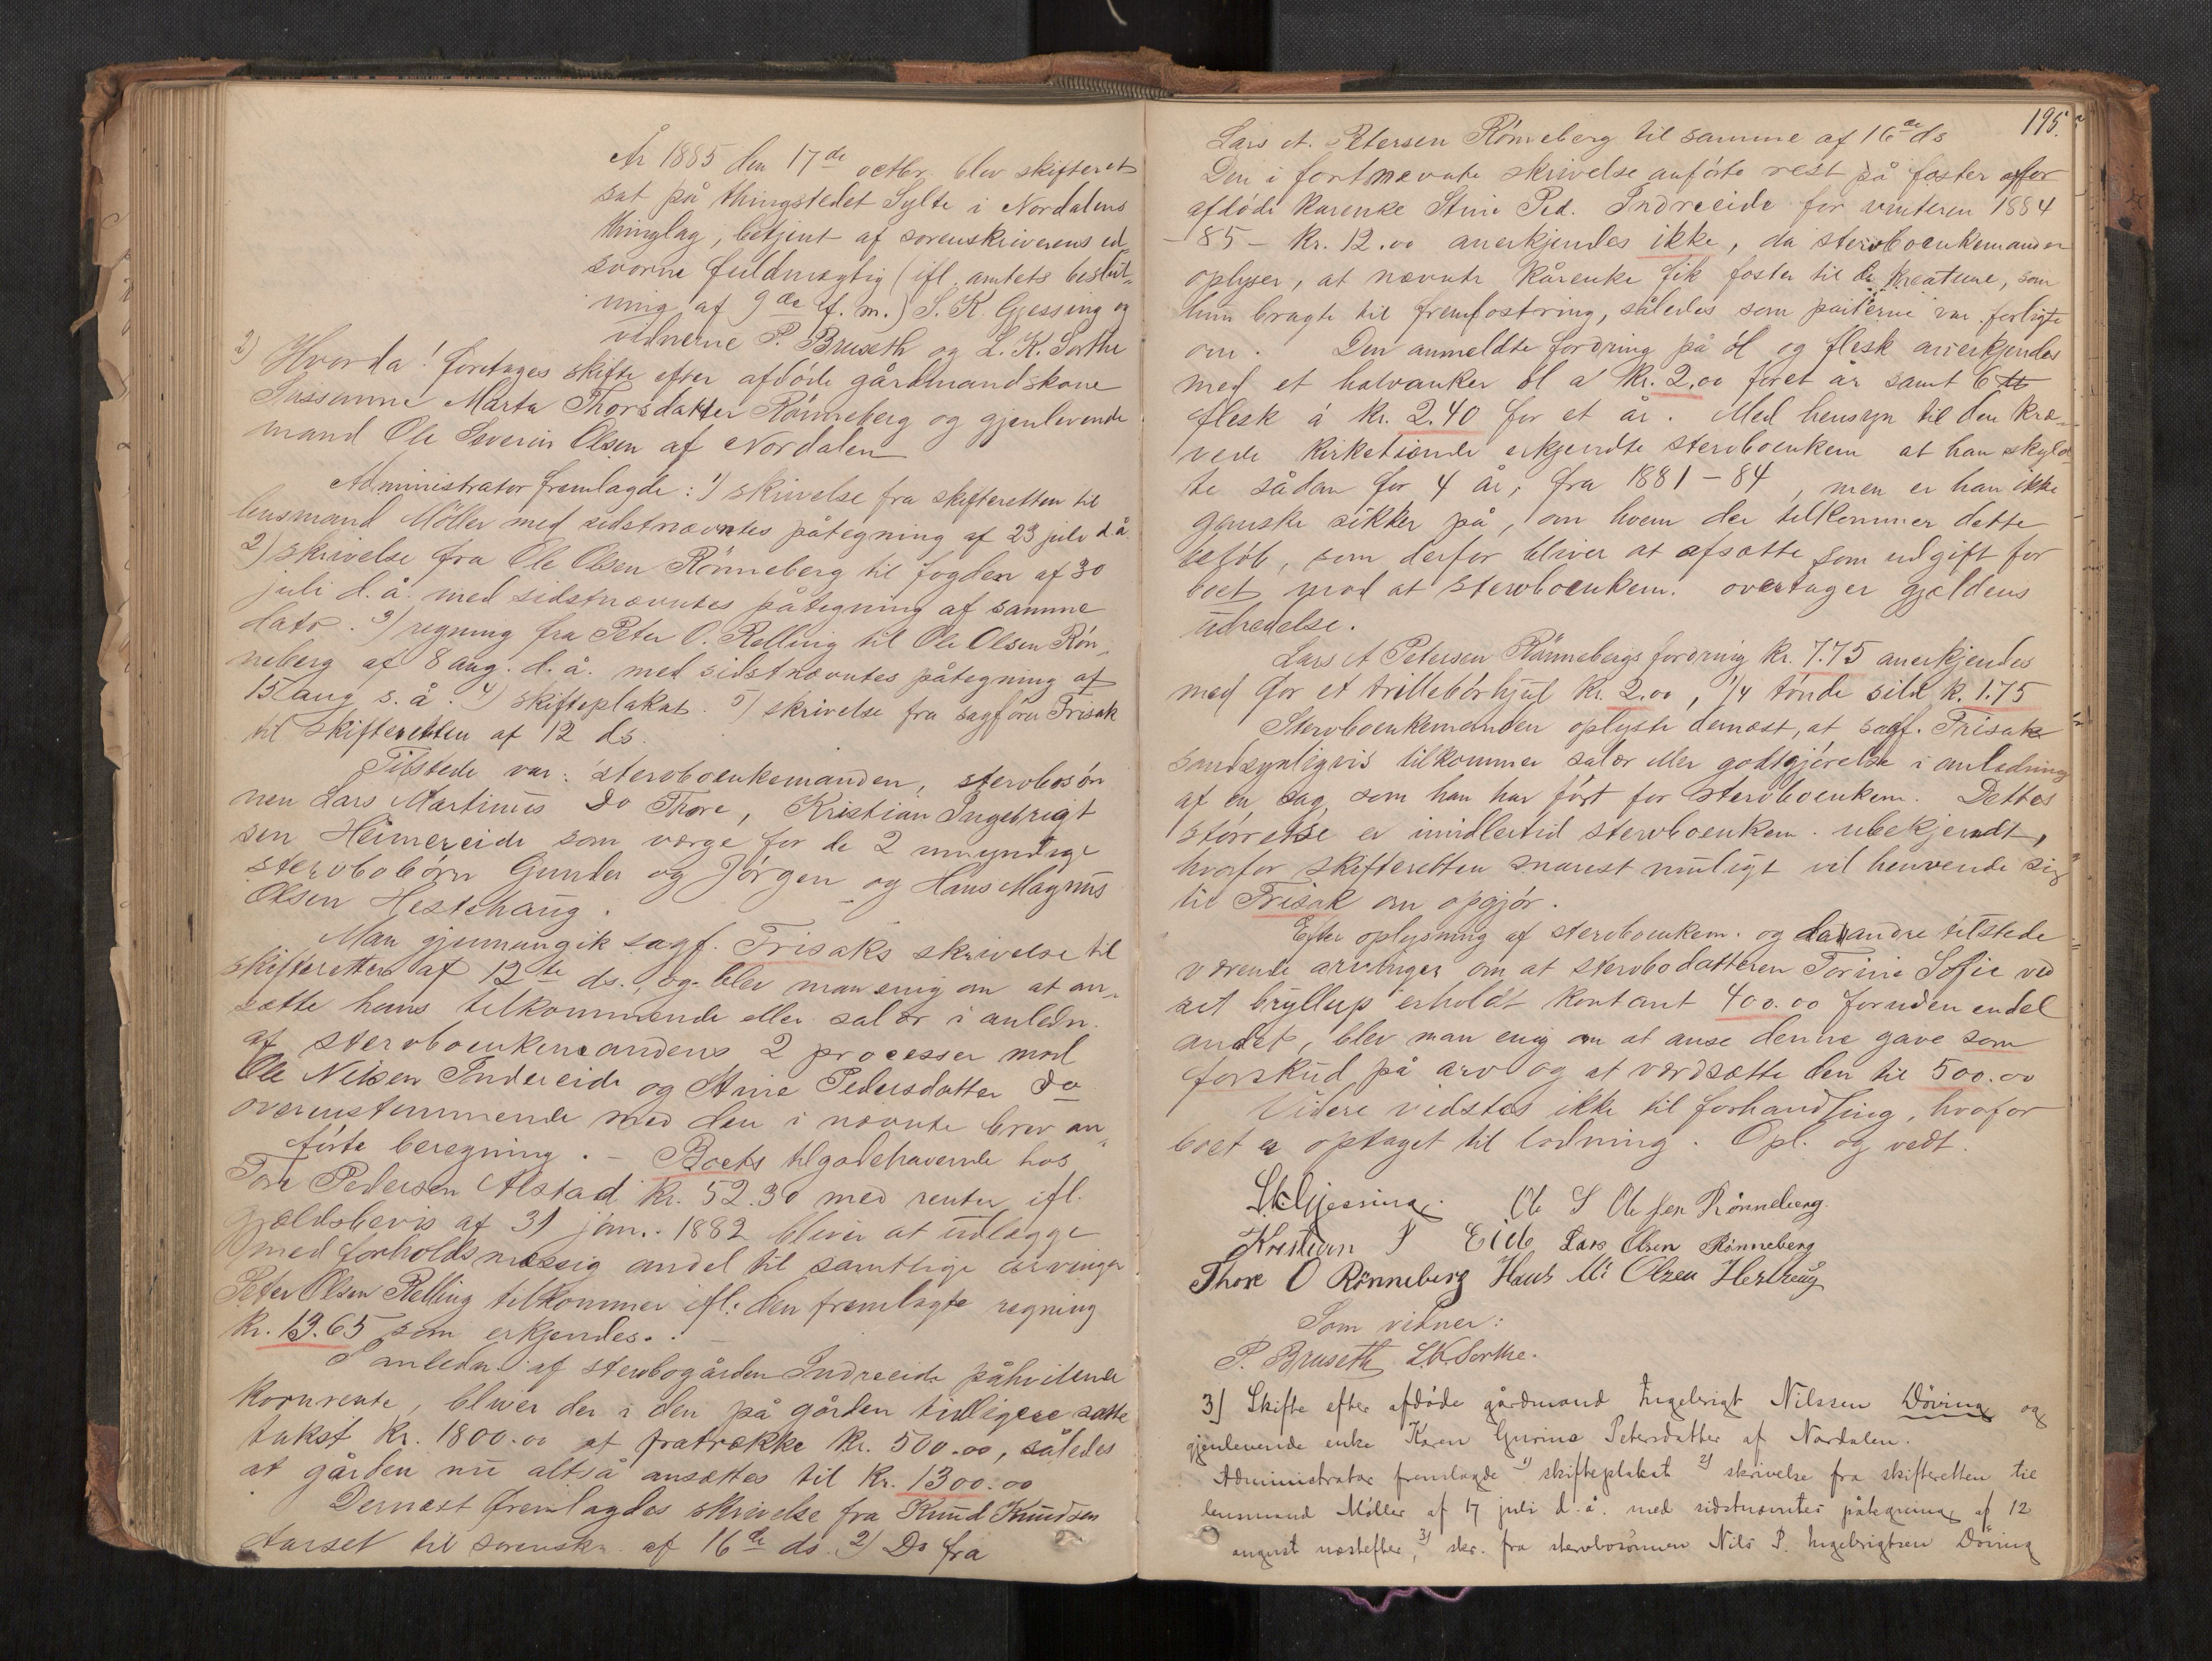 År 1885 den 17de octbr. blev skifteret
sat på thingstedet Sylte i Nordalens
thinglag, betjent af sorenskriverens ed-
svorne fuldmægtig (ifl. amtets beslut-
ning af 9de f. m.) S. K. Gjessing og
vidnerne P. Bruseth og L. K. Sorthe
2) Hvorda! foretages skifte efter afdøde gårdmandskone
Sussanne Marta Thorsdatter Rønneberg og gjenlevende
mand Ole Severin Olsen af Nordalen
Administrator fremlagde: 1) skrivelse fra skifteretten til
lensmand Möller med sidstnævntes påtegning af 23 juli d.å.
2) skrivelse fra Ole Olsen Rønneberg til fogden af 30
juli d.å. med sidstnævntes påtegning af samme
dato. 3) regning fra Peter O. Relling til Ole Olsen Røn-
neberg af 8 aug. d.å. med sidstnævntes påtegning af
15 aug s.å. 4) skifteplakat. 5) skrivelse fra sagfører Frisak
til skifteretten af 12 ds.
Tilstede var: sterboenkemanden, sterbosøn
nen Lars Martinus Do Thore, Kristian Ingebrigt
sen Heimereide som værge for de 2 umyndige
sterbobørn Gunder og Jörgen og Hans Magnus
Olsen Hestehaug.
Man gjennemgik sagf. Frisaks skrivelse til
skifteretten af 12te ds., og blev man enig om at an-
sætte hans tilkommende eller salær i anledn.
af sterboenkemandens 2 processer mod
Ole Nilsen Indereide og Stine Pedersdatter Do
overenstemmende med den i nævnte brev an-
førte beregning. – Boets tilgodehavende hos
Tore Pedersen Alstad kr. 52.30 med renter ifl.
gjældsbevis af 31 jan. 1882 bliver at udlægge
med forholdsmæssig andel til samtlige arvinger
Peter Olsen Relling tilkommer ifl. den fremlagte regning
kr. 13.65 som erkjendes.
I anledn. af sterbogården Indreeide påhvilende
kornrente, bliver der i den på gården tidligere satte
takst kr. 1800.00 at fratrække kr. 500.00, således
at gården nu altså ansættes til kr. 1300.00
Dernæst fremlagdes skrivelse fra Knud Knudsen
til sorenskr. af 16de ds. 2) Do fra
195.
Lars A. Petersen Rønneberg til samme af 16de ds
Den i førstnævnte skrivelse anførte rest på foster for
afdøde kårenke Stine Ped. Indreeide for vinteren 1884
– 85 – kr. 12.00 anerkjendes ikke, da sterboenkemanden
oplyser, at nævnte kårenke fik foster til de kreature, som
hun bragte til fremfostring, således som parterne var forligte
om. Den anmeldte fordring på øl og flesk anerkjendes
med et halvanker øl a kr. 2.00 for et år samt 6 ℔
flesk á kr. 2.40 for et år. Med hensyn til den kræ-
vede kirketiende erkjendte sterboenkem at han skyld-
te sådan for 4 år, fra 1881 – 84, men er han ikke
ganske sikker på, om hvem der tilkommer dette
beløb, som derfor bliver at afsætte som udgift for
boet mod at sterboenkem. overtager gjældens
udredelse.
Lars A Petersen Rønnebergs fordring kr. 7.75 anerkjendes
med for et trillebørhjul kr. 2.00, 1/4 tønde sild k. 1.75
Sterboenkemanden oplyste dernæst, at sagf. Frisak
sandsynligvis tilkommer salær eller godtgjørelse i anledning
af en sag, som han har ført for sterboenkem. Dettes
størrelse er imidlertid sterboenkem. ubekjendt,
hvorfor skifteretten snarest muligt vil henvende sig
til Frisak om opgjør.
Efter oplysning af sterboenkem. og de andre tilstede
værende arvinger om at sterbodatteren Torine Sofie ved
sit bryllup erholdt kontant 400.00 foruden endel
andet, blev man enig om at anse denne gave som
forskud på arv og at værdsætte den til 500.00
Videre vidstes ikke til forhandling, hvorfor
boet er optaget til lodning. Opl. og vedt.
S.K.Gjessing. Ole S Olsen Rønneberg.
Kristian I Eide Lars Olsen Rønneberg
Thore O Rønneberg Hans M: Olsen Hesthaug
Som vidner:
P. Bruseth L.K.Sorthe.
3) Skifte efter afdøde gårdmand Ingebrigt Nilssen Döving og
gjenlevende enke Karen Gurine Petersdatter af Nordalen.
Administrator fremlagde 1) skifteplakat 2) skrivelse fra skifteretten til
lensmand Møller af 17 juli d.å. med sidstnævntes påtegning af 12
august næstefter, 3) skr. fra sterbosønnen Nils P. Ingebrigtsen Döving